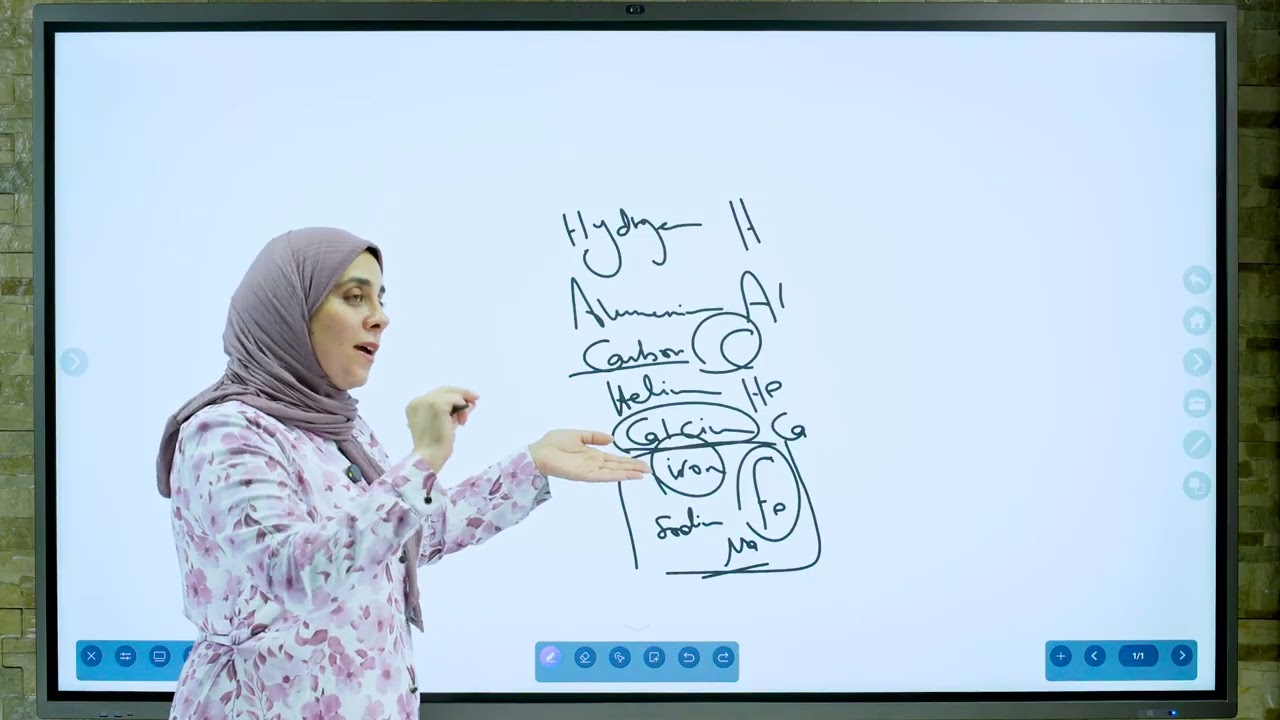 Hydrogen H
Alumenium Al
Carbon C
Helium He
Calcium Ca
iron Fe
Sodium
Na
1/1